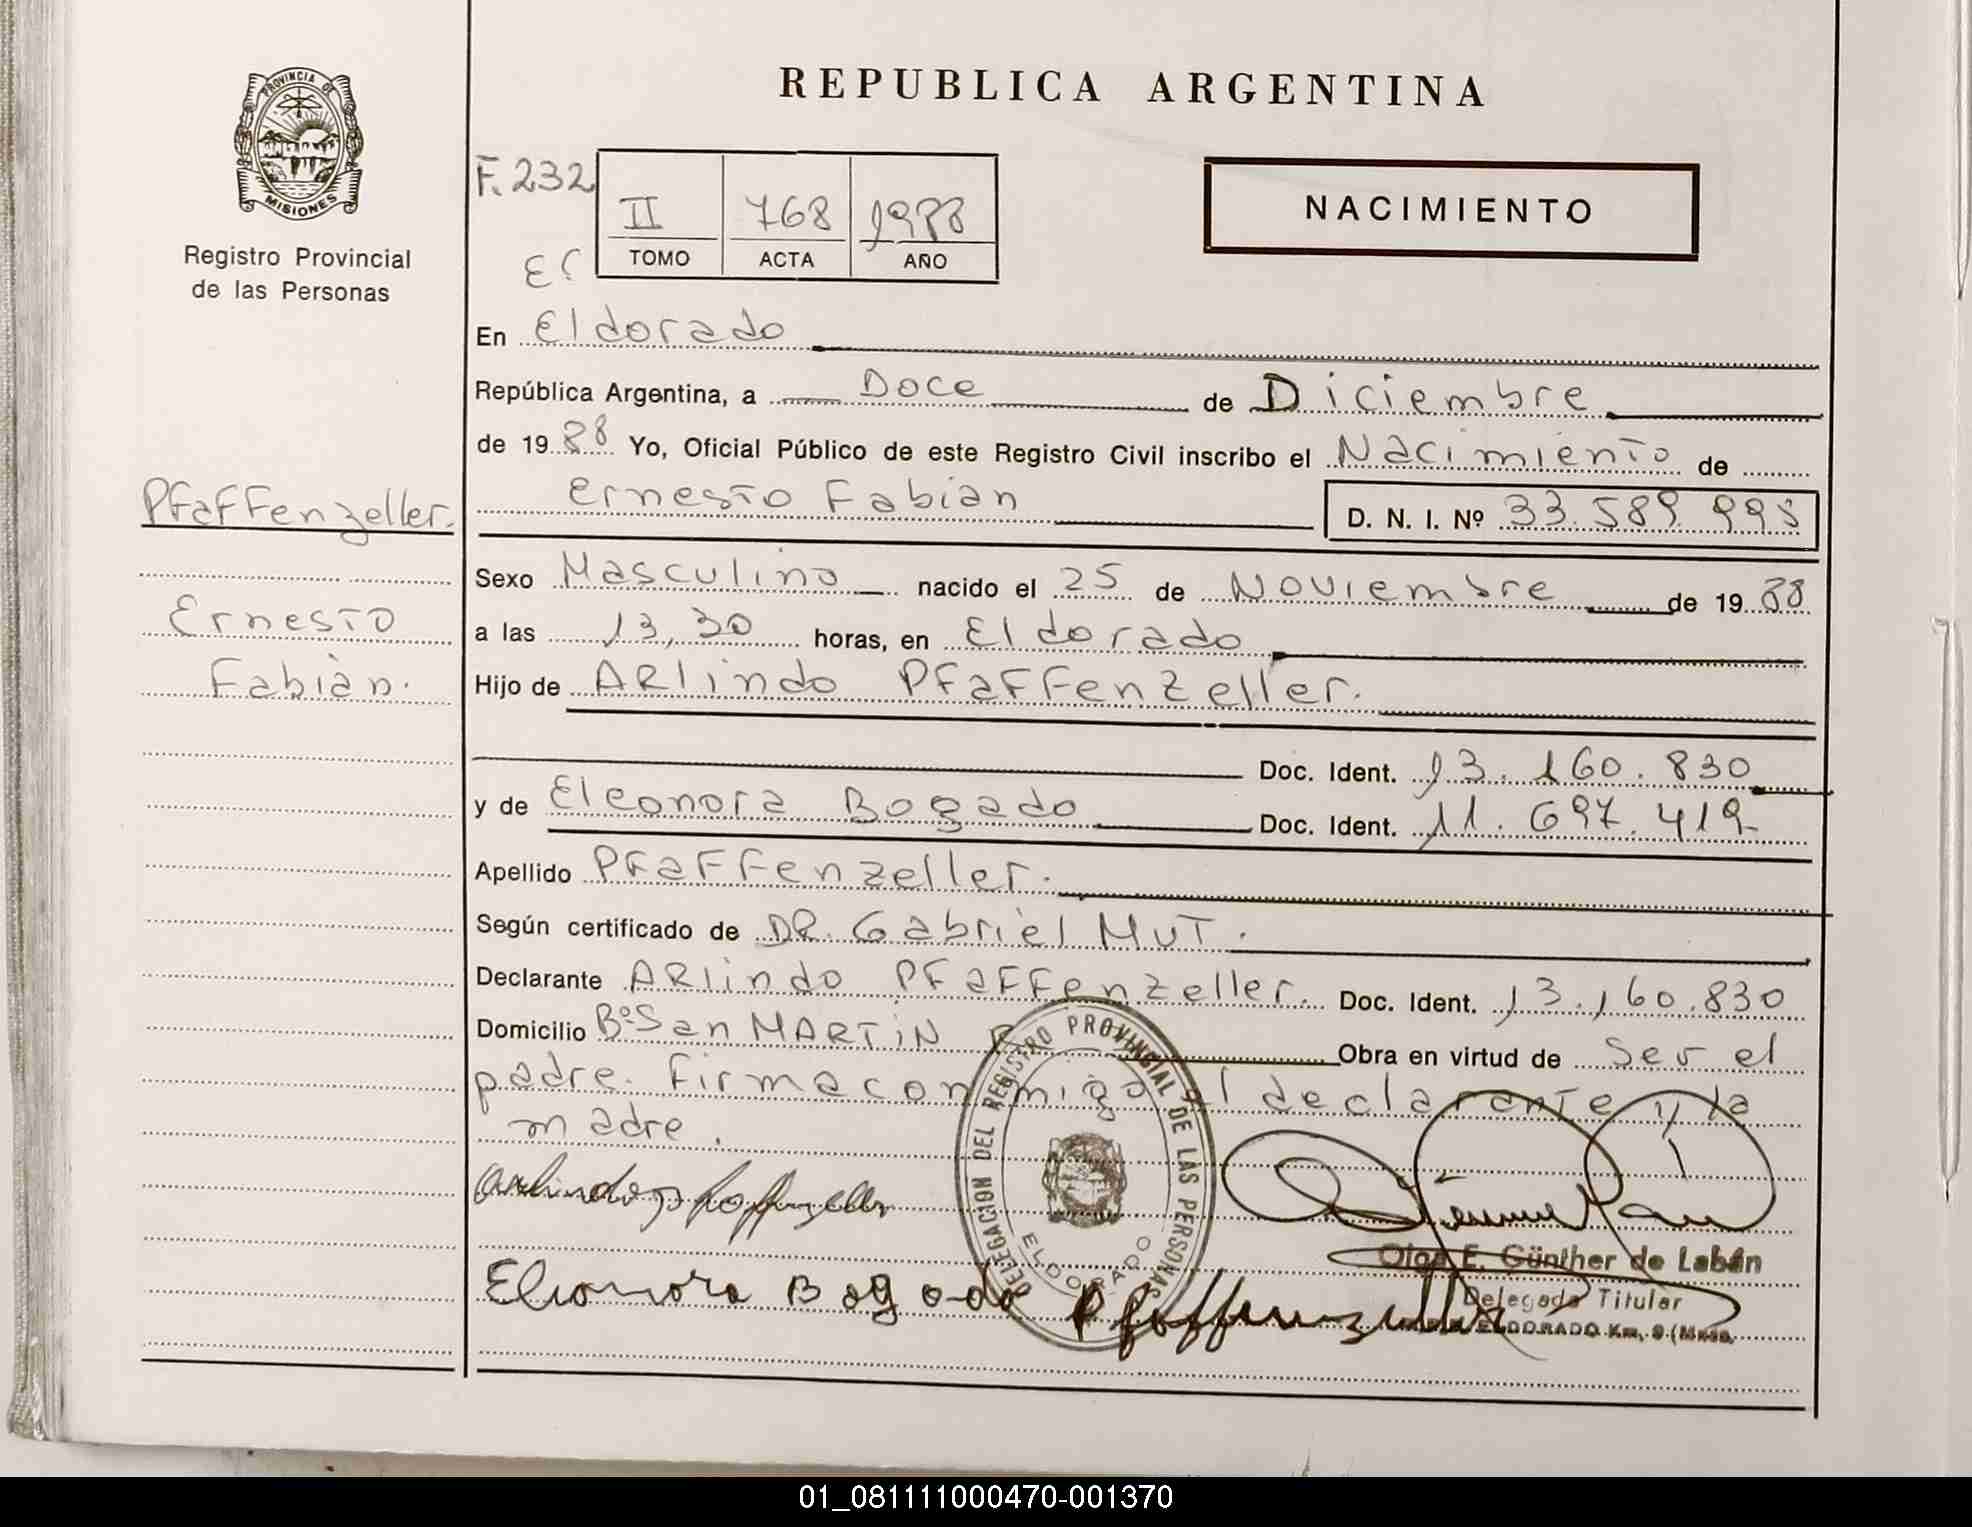 REPUBLICA ARGENTINA
PROVINCIA DE
MISIONES
Registro Provincial
de las Personas
F. 232
II 768 1988
TOMO ACTA AÑO
NACIMIENTO
En Eldorado
República Argentina, a Doce de Diciembre
de 1988 Yo, Oficial Público de este Registro Civil inscribo el Nacimiento de
Pfaffenzeller.
Ernesto Fabian D. N. I. Nº 33.589.995
Sexo Masculino nacido el 25 de Noviembre de 1988
Ernesto
a las 13,30 horas, en Eldorado
Fabián.
Hijo de Arlindo Pfaffenzeller.
Doc. Ident. 13.160.830
y de Eleonora Bogado Doc. Ident. 11.697.419
Apellido Pfaffenzeller.
Según certificado de DR. Gabriel Mut.
Declarante Arlindo Pfaffenzeller. Doc. Ident. 13.160.830
Domicilio Bº San MARTiN Obra en virtud de ser el
padre. Firma conmigo el declarante y la
madre.
DELEGACION DEL REGISTRO PROVINCIAL DE LAS PERSONAS
ELDORADO
Arlindo Pfaffenzeller
Olga E. Günther de Labán
Delegada Titular
ELDORADO Km. 9 (Mnes.
Eleonora Bogado Pfaffenzeller
01_081111000470-001370